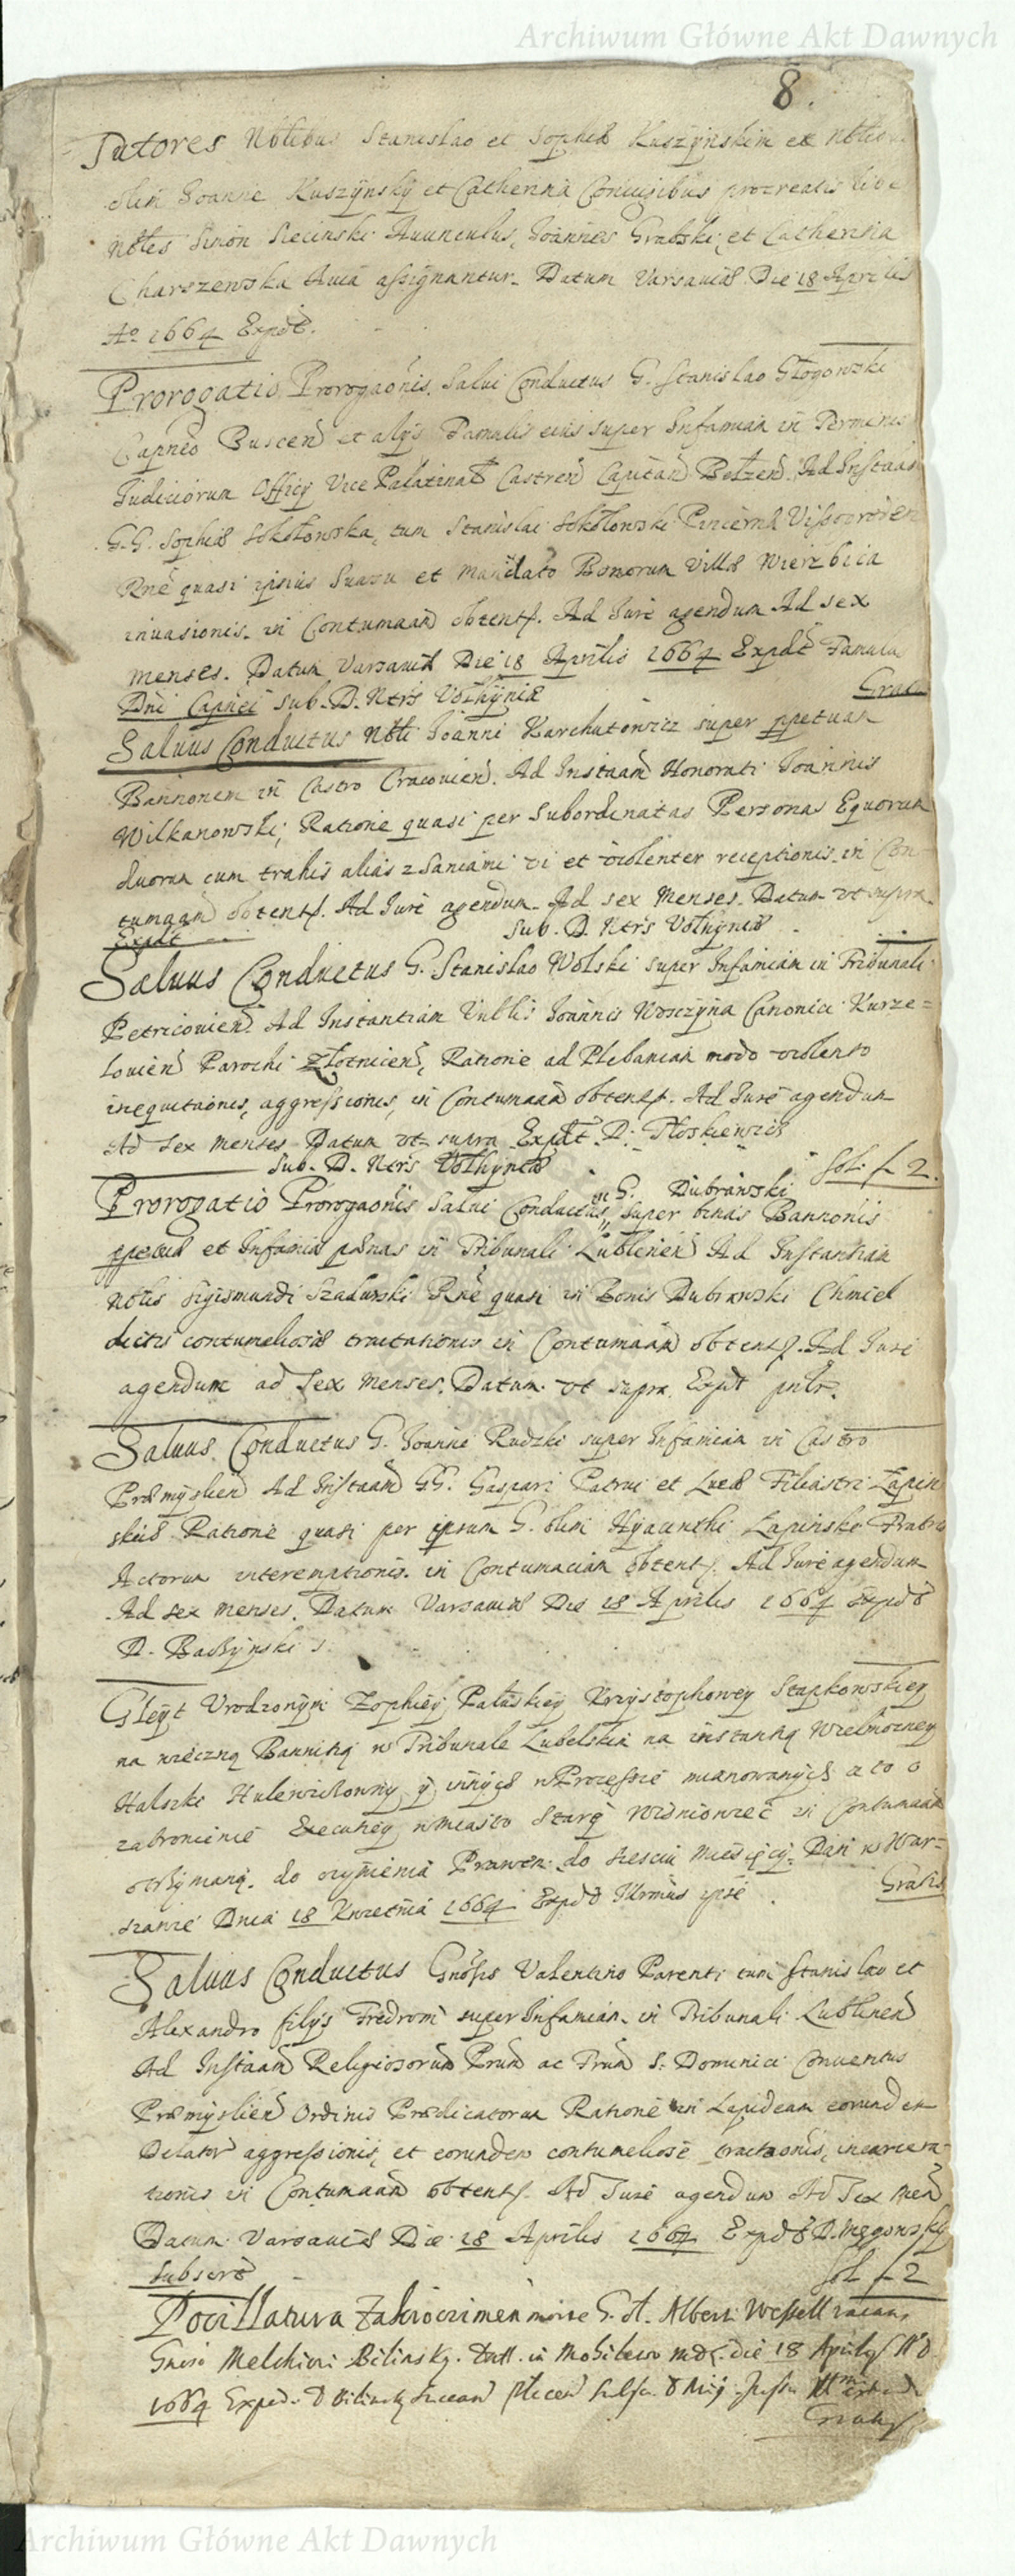 Archiwum Główne Akt Dawnych
8.
Tutores Nobilibus Stanislao et Sophiæ Kuszÿnskim ex Nobili
olim Joanne Kuszÿnskÿ et Catherina Coniugibus procreatis libe
Nobles Simon Siecinski Auunculus, Joannes Grabski, et Catherina
Charszewska Auia assignantur. Datum Varsauiæ Die 18 Aprilis
Aº 1664 Expdt.
Prorogatio Prorogaõnis Salui Conductus G. Stanislao Głogowski
Capneo Buscen et alÿs Famulis eius super Infamiam in Terminis
Judiciorum Officÿ Vice Palatinal Castren Capitan Belzen. Ad Instaan
G.G. Sophiæ Sokołowska, tum Stanislai Sokołowski Pincerna
Rne quasi ipsius Suasu et Mandato Bonorum Villæ Wierzbica
inuasionis. in Contumaam obtent. Ad Jure agendum Ad sex
menses. Datum Varsauiæ Die 18 Aprilis 1664 Expdt Famulu
Dni Capnei Sub. D. Ntris Volhÿniæ
Grat
Saluus Conductus Nobli Joanni Karchutowicz super ppetuam
Bannonem in Castro Cracouien. Ad Instaam Honorati Joannis
Wilkanowski, Ratione quasi per Subordinatas Personas Equorum
duorum cum trahis alias z Saniami vi et violenter receptionis in Con
tumaam obtent. Ad Jure agendum. Ad sex Menses. Datum vt supra.
Expdt Sub. D. Ntris Volhÿniæ
Saluus Conductus G. Stanislao Wolski super Infamiam in Tribunali
Petricouien. Ad Instantiam Vnblis Joannis Canonici Kurze=
louien Parochi Złotnicen, Ratione ad Plebaniam modo violento
inequitaonis, aggressionis, in Contumaam obtent. Ad Jure agendum
Ad Sex menses Datum vt supra Expdt D. Płoskiewicz
Sub. D. Ntris Volhÿniæ Sol. f. 2.
Prorogatio Prorogaõnis Salui Conductus G. Dubrawski super binas Bannonis
ppetuæ et Infamiæ pænas in Tribunali Lublinen Ad Instantiam
Noblis Sigismundi Szadurski Rne quasi in Bonis Dubrawski Chmiel
dictis contumeliosæ tractationis in Contumaam obtent. Ad Jure
agendum ad Sex Menses. Datum vt supra. Expdt
Saluus Conductus G. Joanni Rudzki super Infamiam in Castro
Præmÿslien Ad Instaam GG. Gaspari Patrui et Lucæ Filiastri Lapin
skich Ratione quasi per ipsum G. olim Hÿacinthi Lapinski Fratris
Actorum interemptionis. in Contumaciam obtent. Ad Jure agendum
Ad sex menses. Datum Varsauiæ Die 18 Aprilis 1664 Expdt
D.
Gleÿt Vrodzonÿm Zophieÿ Krzÿsztophoweÿ Stapkowskieÿ
na wieczną Bannitią w Tribunale Lubelskim na instantią Wielmozneÿ
Halszki Hulewiczownÿ ÿ innÿch w Processie mianowanÿch a to o
zabronienie Executieÿ w Miasto Starÿ Wisniowiec in Contumaam
otrzÿmaną. do czÿnienia Prawem do szesciu Miesięcÿ. Dan w War=
szawie Dnia 18 Kwietnia 1664 Expdt Gratis
Saluus Conductus Gnosis Valentino Parenti tum Stanislao et
Alexandro filÿs Fredrom super Infamiam in Tribunali Lublinen
Ad Instaam Religiosorum Prum ac Frum S. Dominici Conuentus
Præmÿslien Ordinis Prædicatorum Ratione in Lapideam eorundem
Delator aggressionis, et eorundem contumeliose tractaonis, incarcera
tionis in Contumaam obtent. Ad Jure agendum Ad Sex Men
Datum Varsauiæ Die 18 Aprilis 1664 Expdt D.
Subscr Sol f. 2
Pocillatura Zakroczimen morte G. A. Alberti Wessell vacans
Gneroso Melchiori Bilinsky. Datt. in die 18 Aprilis Aº
1664 Exped.
Gratis
Archiwum Główne Akt Dawnych